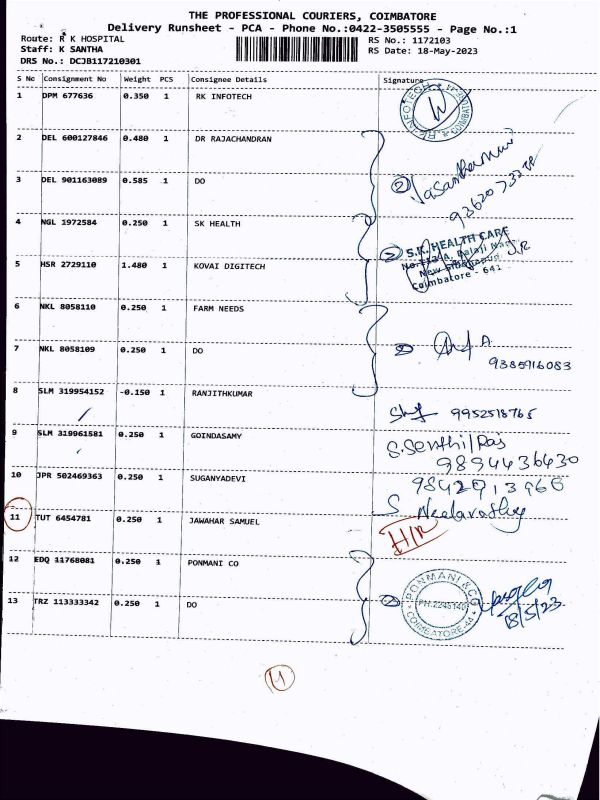 THE PROFESSIONAL COURIERS, COIMBATORE
Delivery Runsheet - PCA - Phone No.:0422-3505555 - Page No.:1
Route: R K HOSPITAL
RS No.: 1172103
Staff: K SANTHA
RS Date: 18-May-2023
DRS No.: DCJB117210301
S No Consignment No Weight PCS Consignee Details Signature
1 DPM 677636 0.350 1 RK INFOTECH
2 DEL 600127846 0.480 1 DR RAJACHANDRAN
3 DEL 901163089 0.585 1 DO
4 NGL 1972584 0.250 1 SK HEALTH
S.K. HEALTH CARE
5 HSR 2729110 1.480 1 KOVAI DIGITECH
Coimbatore - 641
6 NKL 8058110 0.250 1 FARM NEEDS
7 NKL 8058109 0.250 1 DO
9385916083
8 SLM 319954152 -0.150 1 RANJITHKUMAR
9952518765
9 SLM 319961581 0.250 1 GOINDASAMY
9894436430
10 JPR 502469363 0.250 1 SUGANYADEVI
11 TUT 6454781 0.250 1 JAWAHAR SAMUEL
H/R
12 EDQ 11768081 0.250 1 PONMANI CO
PONMANI & CO
COIMBATORE-44
13 TRZ 113333342 0.250 1 DO
18/5/23